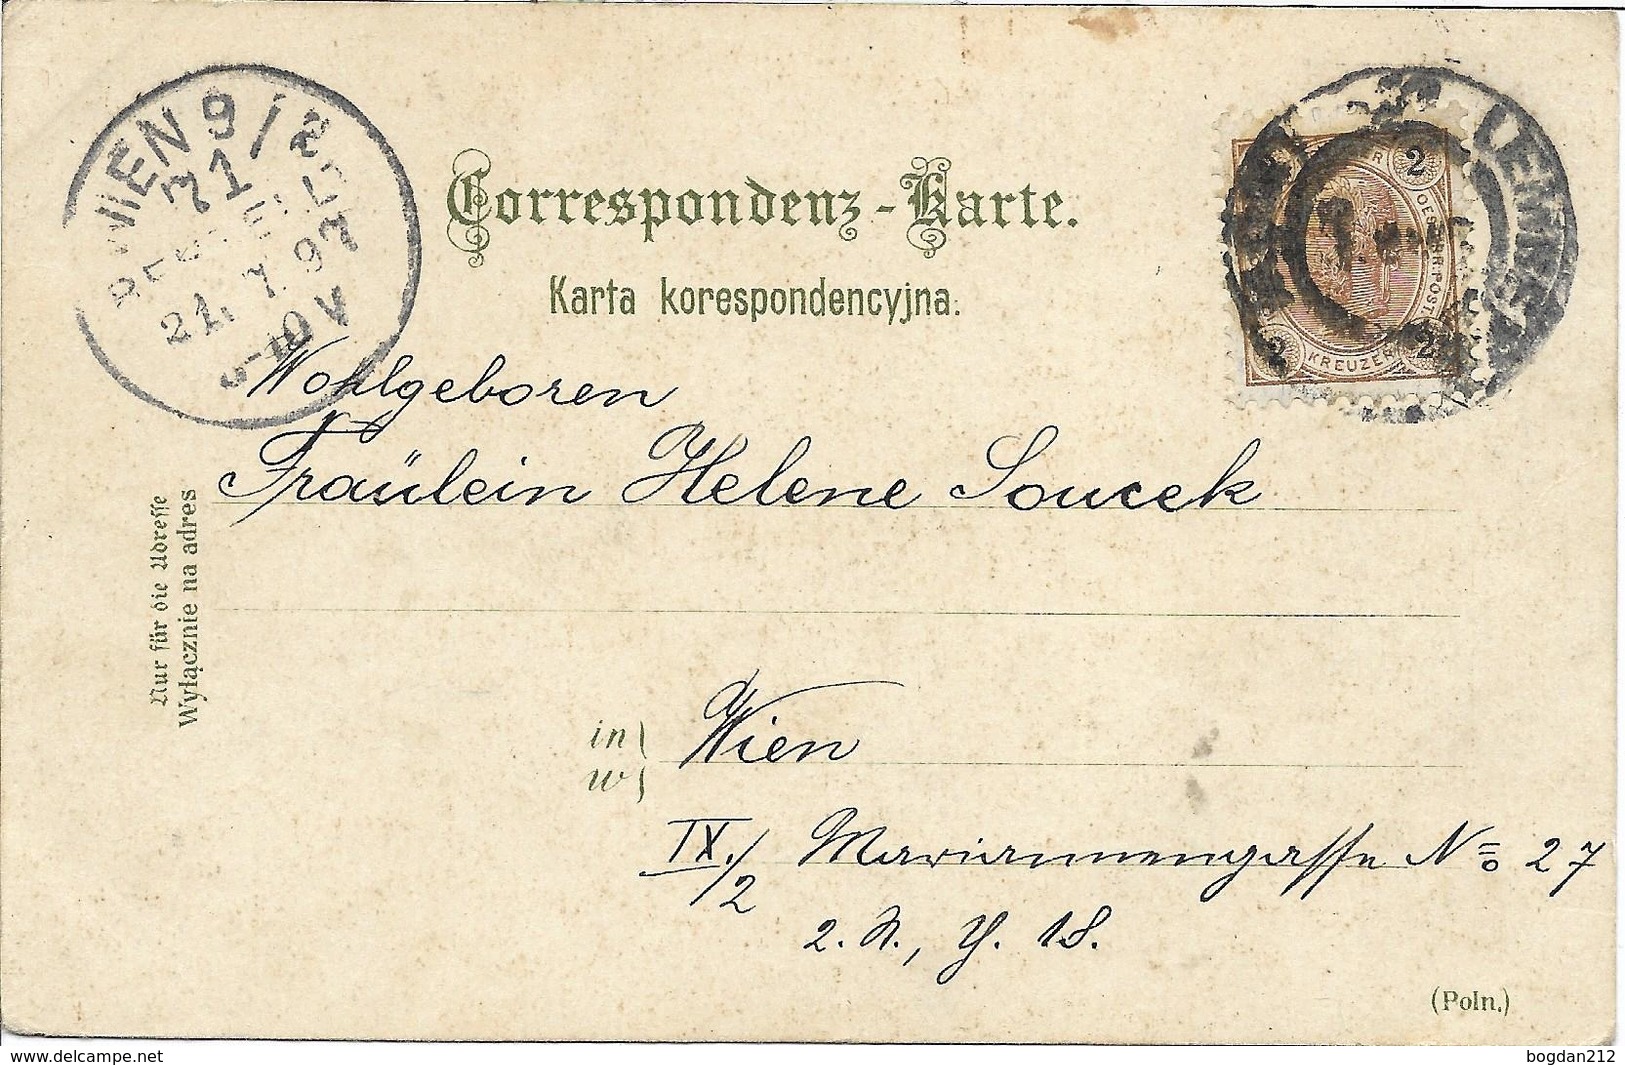 WIEN 9/2
71
BESTELLT
21. 7. 97
LEMBERG
2
KREUZER
2
2
Correspondenz-Karte.
Karta korespondencyjna.
Wohlgeboren
Fräulein Helene Soucek
Nur für die Adresse
Wyłącznie na adres
in
w
Wien
IX./2 Mariannengasse No 27
2. St., T. 18.
(Poln.)
delcampe.net
bogdan212